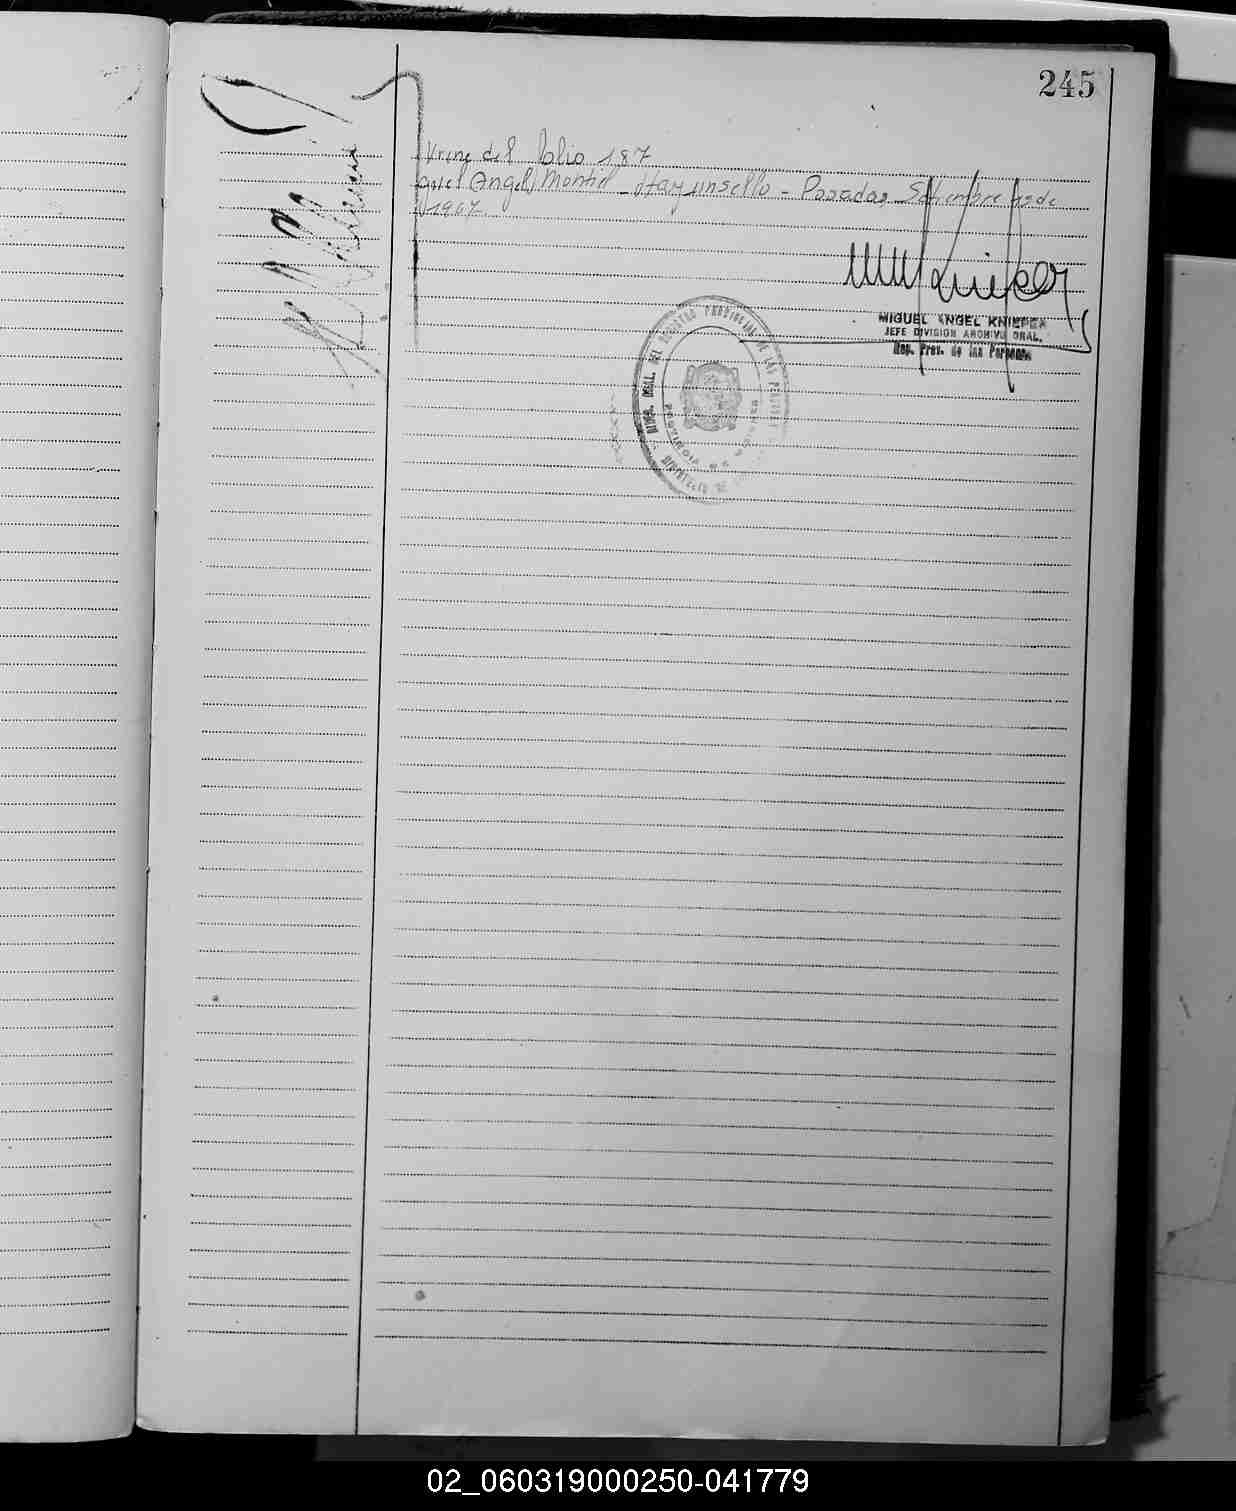 245
Viene del folio 187
Angel Montiel - Hay un sello - Posadas, Setiembre de
1967.
MIGUEL ANGEL KNIEPER
JEFE DIVISION ARCHIVO GRAL.
Reg. Prov. de las Personas
REGISTRO PROVINCIAL DE LAS PERSONAS
PROVINCIA DE MISIONES
02_060319000250-041779